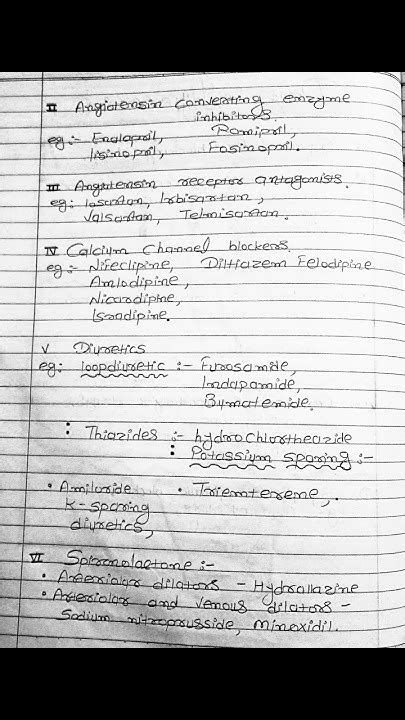 II Angiotensin converting enzyme
inhibitors.
eg:- Enalapril, Ramipril,
lisinopril, Fosinopril.
III Angiotensin receptor antagonists.
eg: losartan, Irbisartan,
Valsartan, Telmisartan.
IV Calcium Channel blockers.
eg:- Nifeclipine, Diltiazem Felodipine
Amlodipine,
Nicardipine,
Isradipine.
V Diuretics
eg: loopdiuretic :- Furosamide,
Indapamide,
Bumatemide.
: Thiazides :- hydrochlortheazide
: Potassium sparing :-
• Amiloride • Triemtereme,.
K-sparing
diuretics,
VI Spironolactone :-
• Arterialar dilators - Hydrallazine
• Arterialar and venous dilators -
Sodium nitroprusside, Minoxidil.